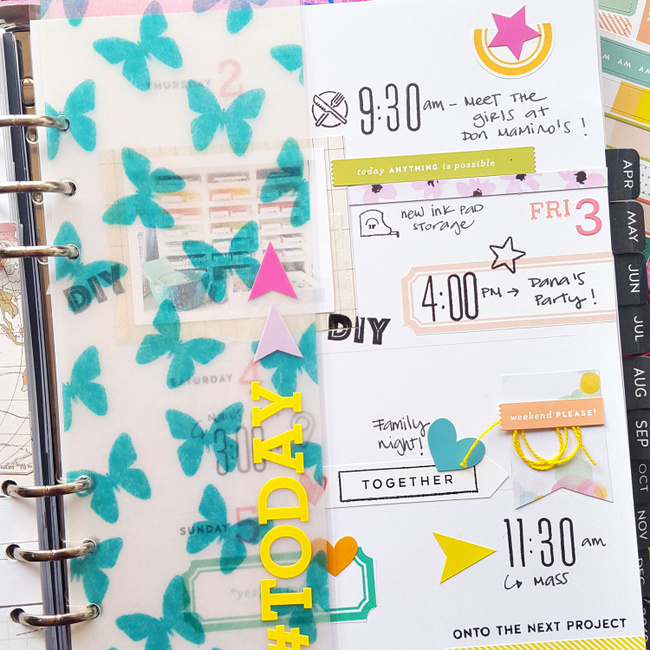 THURSDAY 2
9:30 am - MEET THE
GIRLS AT
DON MAMINO'S!
today ANYTHING is possible
NEW INK PAD
STORAGE
FRI 3
DIY
4:00 PM → DANA'S
PARTY!
DIY
SATURDAY 4
3:00
#TODAY
Family
night!
weekend PLEASE!
TOGETHER
SUNDAY 5
11:30 am
↳ MASS
"yes
ONTO THE NEXT PROJECT
APR
MAY
JUN
JUL
AUG
SEP
OCT
NOV
DEC
AM AM AM